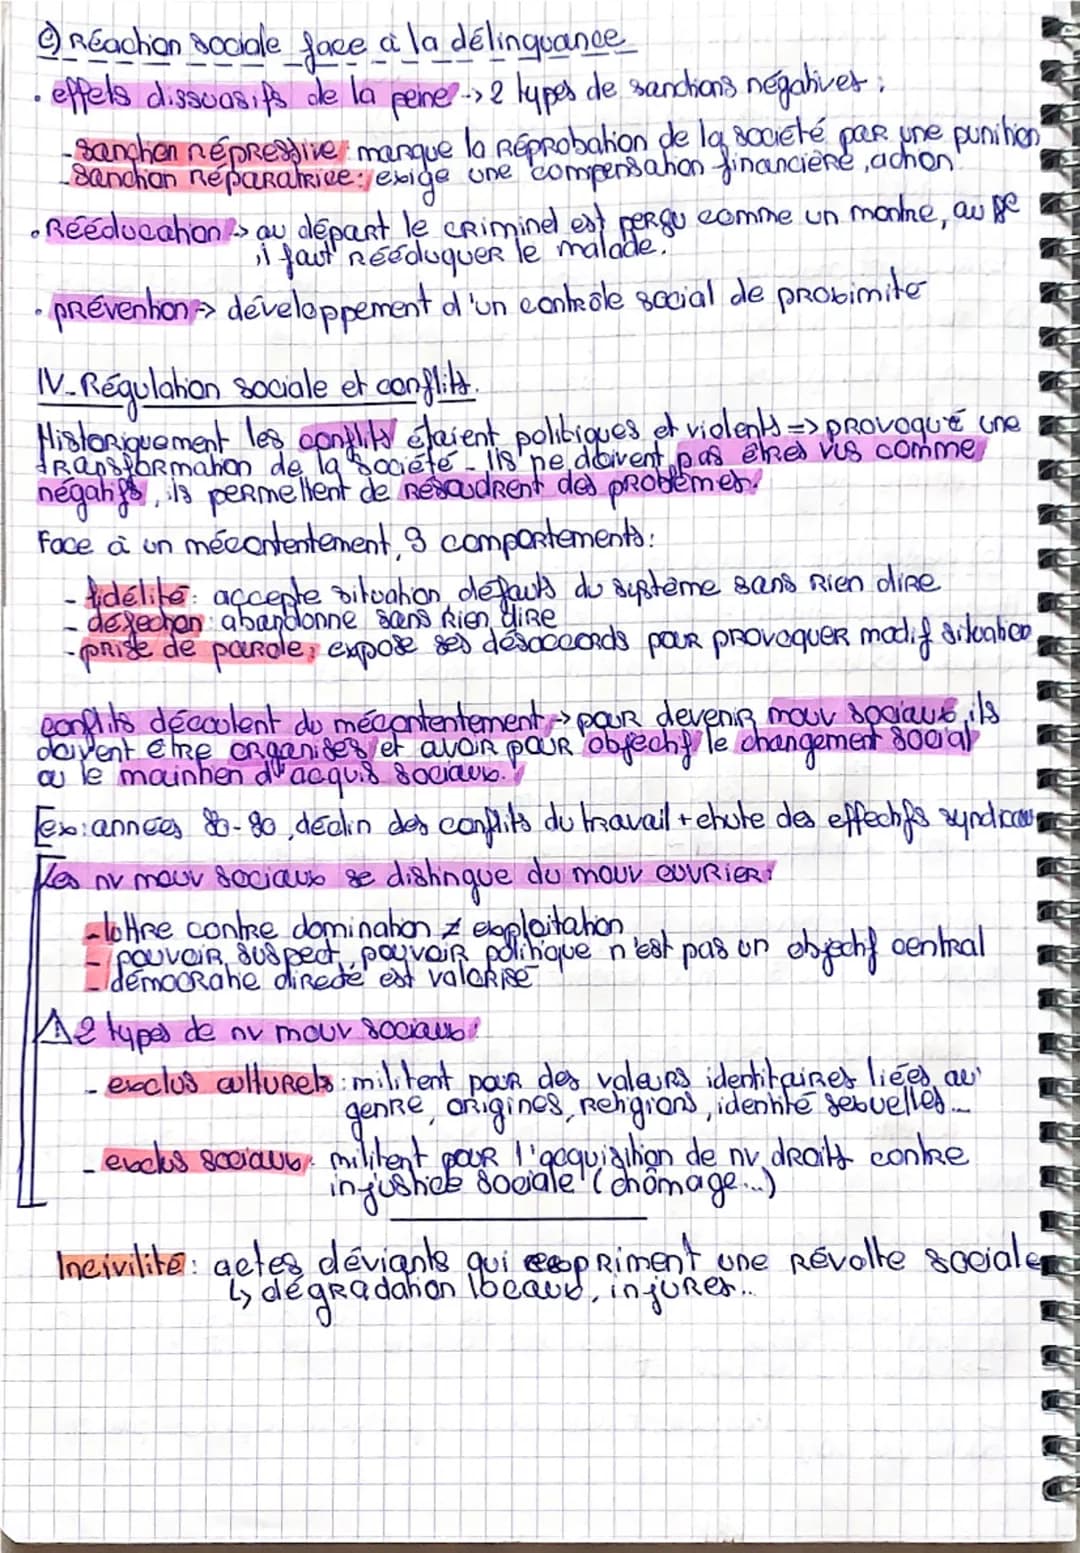 c) Réaction sociale face à la délinquance
. effets dissuasifs de la peine -> 2 types de sanctions négatives :
- sanction répressive : marque la réprobation de la société par une punition
- sanction réparatrice : exige une compensation financière, action.
. Rééducation -> au départ le criminel est perçu comme un montre, au
il faut rééduquer le malade.
. prévention -> développement d'un contrôle social de proximité
IV- Régulation sociale et conflits.
Historiquement les conflits étaient politiques et violents => provoqué une
transformation de la société - ils ne doivent pas êtres vus comme
négatifs, ils permettent de résoudrent des problèmes.
Face à un mécontentement, 3 comportements :
- fidélité : accepte situation défauts du système sans rien dire
- défection : abandonne sans rien dire
- prise de parole : expose ses désaccords pour provoquer modif situation
conflits découlent du mécontentement -> pour devenir mouv sociaux, ils
doivent être organisés et avoir pour objectif le changement social
ou le maintien d'acquis sociaux.
[ex : années 80-90, déclin des conflits du travail + chute des effectifs syndicaux
Les nv mouv sociaux se distingue du mouv ouvrier :
- lottre contre domination ≠ exploitation
- pouvoir suspect, pouvoir politique n'est pas un objectif central
- démocratie directe est valorisé
⚠ 2 types de nv mouv sociaux :
- exclus culturels : militent pour des valeurs identitaires liées au
genre, origines, religions, identité sexuelles...
- exclus sociaux : militent pour l'acquisition de nv droits contre
injustice sociale (chômage...)
Incivilité : actes déviants qui expriment une révolte sociale
↳ dégradation locaux, injures..